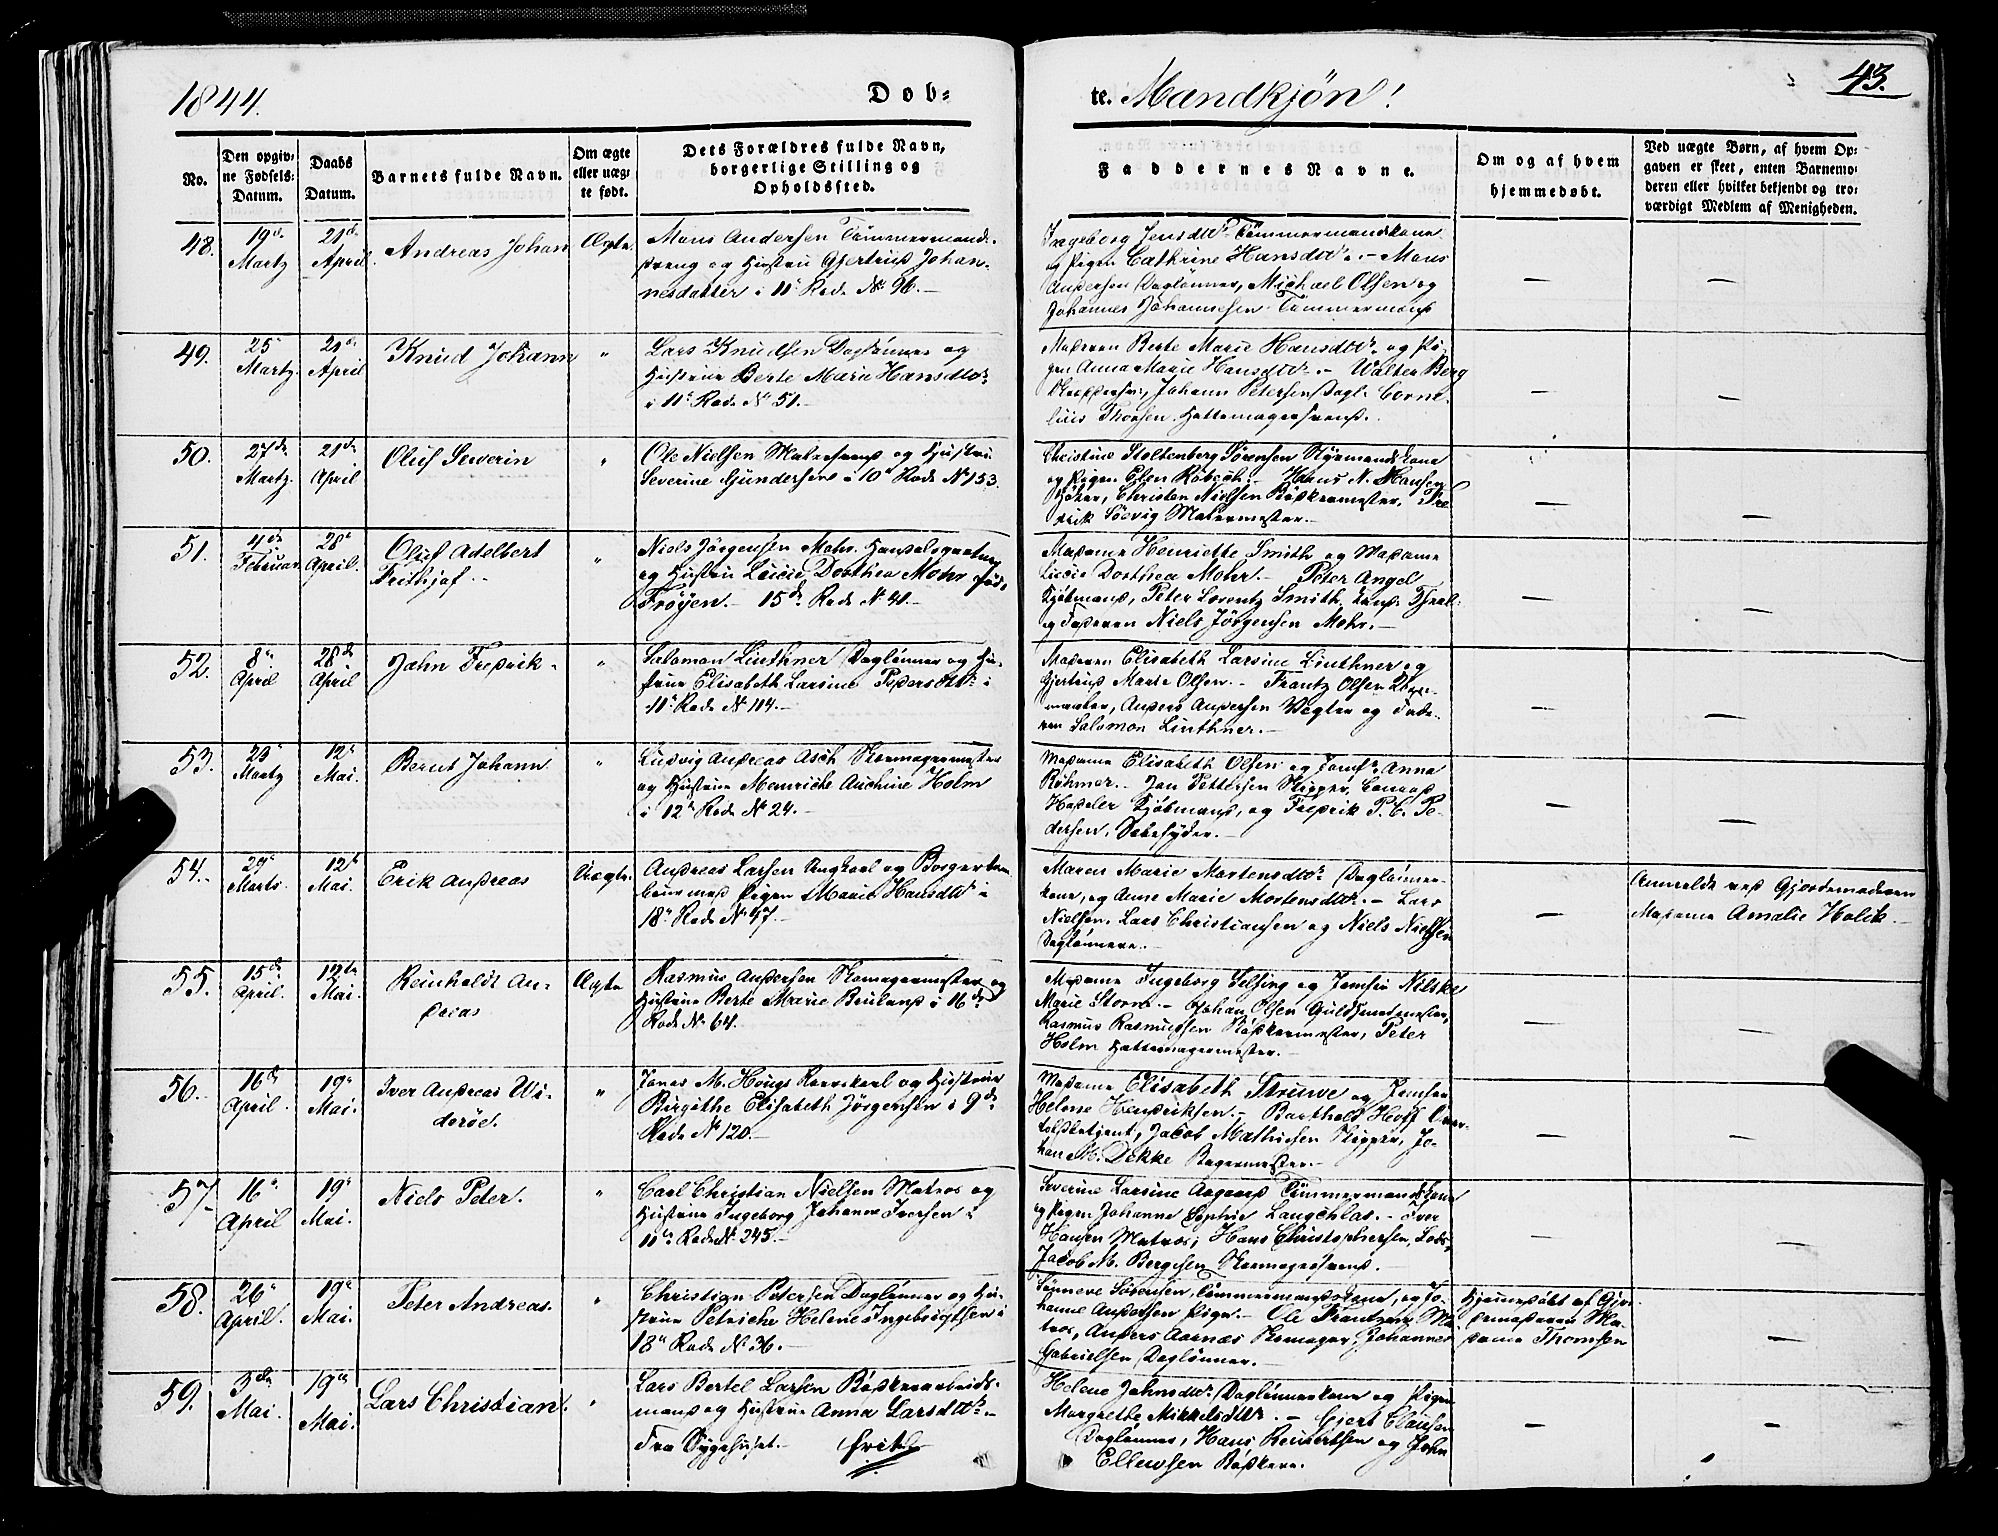 1844.
Dob-
te. Mandkjøn!
43.
No.
Den opgiv-
ne Fødsels-
Datum.
Daabs
Datum.
Barnets fulde Navn.
Om ægte
eller uæg-
te født.
Dets Forældres fulde Navn,
borgerlige Stilling og
Opholdssted.
Faddernes Navne.
Om og af hvem
hjemmedøbt.
Ved uægte Børn, af hvem Op-
gaven er skeet, enten Barnemo-
deren eller hvilket bekjendt og tro-
værdigt Medlem af Menigheden.
48.
19de
Martz
21de
April
Andreas Johan
Ægte
Mons Andersen Tømmermands-
dreng og Hustru Gjertrud Johan-
nesdatter i 11te Rode No 96.
Ingeborg Jensdtr Tømmermandskone
og Pigen Cathrine Hansdtr. - Mons
Andersen Dagløner, Michael Olsen og
Johannes Johannesen Tømmermænd
49.
25
Martz
21de
April
Knud Johann
"
Lars Knudsen Dagløner og
Hustrue Berte Marie Hansdtr
i 11te Rode No 51.-
Maderen Berte Marie Hansdtr. og Pi-
gen Anna Marie Hansdtr. - Walter Berg
Johann Petersen Dagl. Corne-
lius Thorsen Hattemagersvend.
50.
27de
Martz
21de
April
Oluf Severin
"
Ole Nielsen Malersvend og Hustru
Severine Gundersen i 10de Rode No 153.
Christine Stoltenberg Sørensen Styrmandskone
og Pigen Elen - Hans N. Hansen
Høker, Christen Nielsen Bødkermester, Fre-
drik Søevig Malermester.-
51.
4de
Februar
28de
April.
Oluf Adelbert
Frithjof.-
"
Niels Jørgensen Mohr.
og Hustru Lucie Dorthea Mohr fød,
Frøyen.- 15de Rode No 41.-
Madame Henriette Smith og Madame
Lucie Dorthea Mohr.- Peter Angel
Kjøbmand, Peter Lorentz Smith,
og Faderen Niels Jørgensen Mohr.-
52.
8de
April
28de
April
Jahn Fredrik
"
Salomon Linthner Dagløner og Hu-
strue Elisabeth Larsine Pedersdtr i
11te Rode No 114.-
Maderen Elisabeth Larsine Linthner og
Gjertrud Marie Olsen.- Frantz Olsen
Anders Andersen Vægter og Fade-
ren Salomon Linthner.-
53.
29
Martz
12te
Mai.
Bernt Johann
"
Ludvig Andreas Asch Skomagermester
og Hustrue Henriche Holm
i 12te Rode No 24.-
Madame Elisabeth Olsen og Jomfr. Anna
Bøhmer.- Jan Pettersen Skipper, Conrad
Kjøbmand, og Fredrik P. C. Pe-
dersen,
54.
29
Marts.
12te
Mai.
Erik Andreas
Uægte
Andreas Larsen Ungkarl og
Pigen Marie Hansdtr i
18de Rode No 47.-
Maren Marie Mortensdtr Dagløner-
kone, og Anne Marie Mortensdtr.- Lars
Nielsen, Lars Christiansen og Niels Nielsen
Daglønere.-
Anmeldt ved Gjordemoderen
Madame Amalie Holck.-
55.
15de
April.
12te
Mai.
Reinholdt An-
dreas
Ægte
Rasmus Andersen Skomagermester og
Hustrue Berte Marie i 16de
Rode No 64.
Madame Ingeborg Selfing og Jomfru
Marie Storm.- Johan Olsen Guldsmedmester,
Rasmus Rasmussen Bødkermester, Peter
Holm Hattemagermester.-
56.
16de
April.
19de
Mai.
Iver Andreas Wi-
derøe.
"
Jonas M. Hougs og Hustrue
Birgithe Elisabeth Jørgensen i 9de
Rode No 120.-
Madame Elisabeth Struwe og Jomfru
Helene Hendriksen.- Barthold Hoff
Jacob Mathiesen Skipper, Jo-
han M. Dekke Bagermester.-
57.
16de
April
19de
Mai.
Niels Peter.
"
Carl Christian Nielsen Matros og
Hustrue Ingeborg Johanne Iversen i
11te Rode No 245.-
Severine Larsine Aagaard Tømmermandskone
og Pigen Johanne Sophie - Iver
Hansen Matros; Hans Christophersen, Lods,
Jacob M. Bergesen Skomagersvend.
58.
26de
April.
19de
Mai.
Peter Andreas.
"
Christian Petersen Dagløner og Hu-
strue Petriche Helene Ingebrigtsen i
18de Rode No 36.-
Sønneve Sørensen, Tømmermandskone, og Jo-
hanne Andersen Pige.- Ole Frantzen Ma-
tros, Anders Aarnæs Skomager, Johannes
Gabrielsen Dagløner.-
Hjemmedøbt af Gjor-
demoderen Ma-
dame Thomsen
59.
3de
Mai.
19de
Mai.
Lars Christian.
"
Lars Bertel Larsen Bødkerarbeids-
mand og Hustrue Anna Larsdtr.-
Fra Sygehuset.-
Helene Jahnsdtr. Daglønerkone og Pigen
Margrethe Mikkelsdtr.- Gjert Clausen
Dagløner, Hans Reinertsen og John
Ellewsen Bødkere.